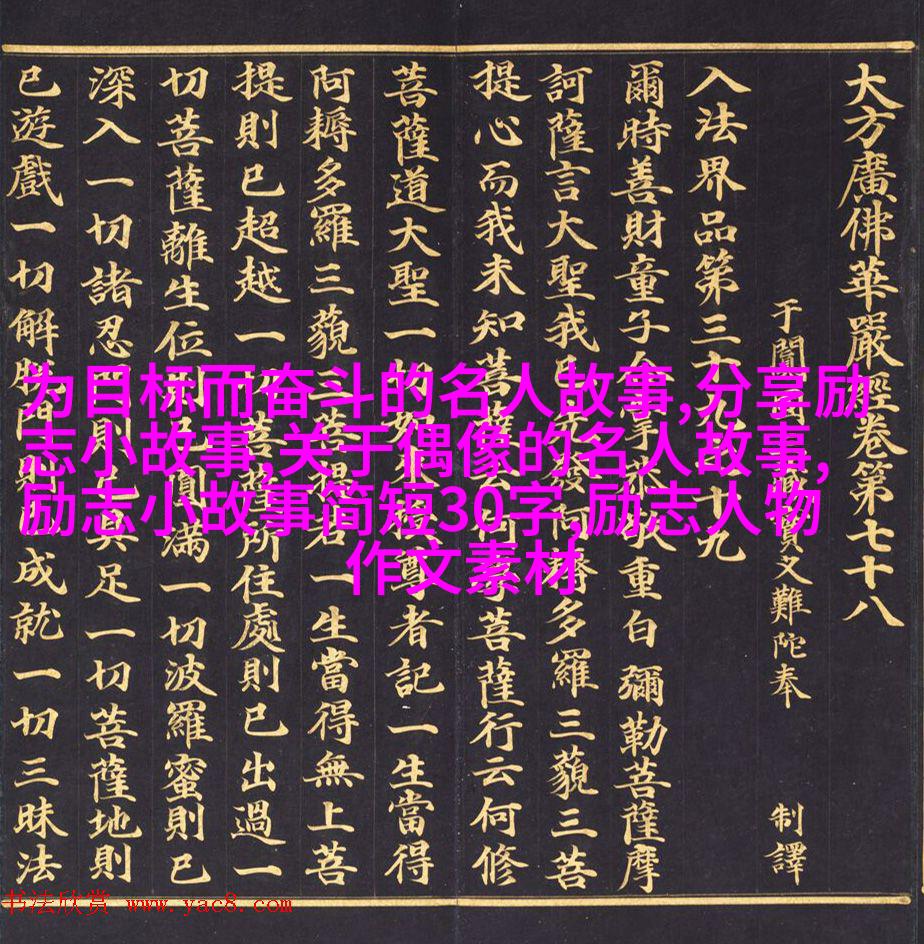 大方廣佛華嚴經卷第七十八
于闐國三藏實叉難陀奉 制譯
入法界品第三十九之十九
爾時善財童子合掌恭敬重白彌勒菩薩摩
訶薩言大聖我已先發阿耨多羅三藐三菩
提心而我未知菩薩云何學菩薩行云何修
菩薩道大聖一切如來授尊者記一生當得
阿耨多羅三藐三菩提若一生當得無上菩
提則已超越一切菩薩所住處則已出過一
切菩薩離生位則已圓滿一切波羅蜜則已
深入一切諸忍門則已具足一切菩薩地則
已遊戲一切解脫門則已成就一切三昧法
为目标而奋斗的名人故事,分享励
志小故事,关于偶像的名人故事,
励志小故事简短30字,励志人物
作文素材
书法欣赏 www.yac8.com